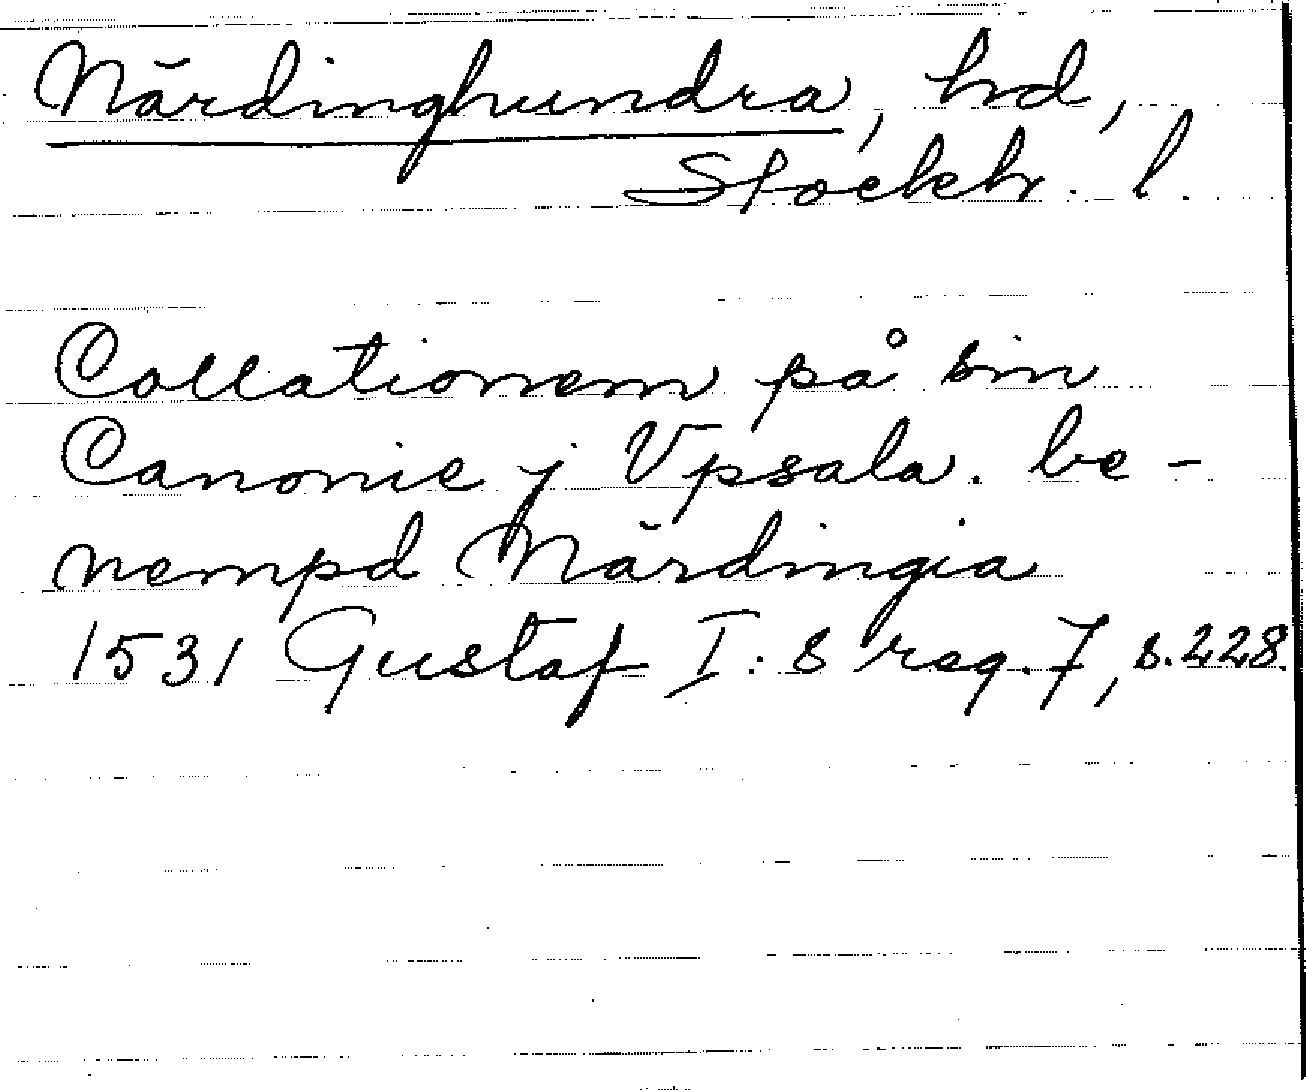 Närdinghundra, hd,
Stockh. l.
Collationem på sin
Canonie j Vpsala. be-
nempd Närdingia
1531 Gustaf I:s reg. 7, s. 228.